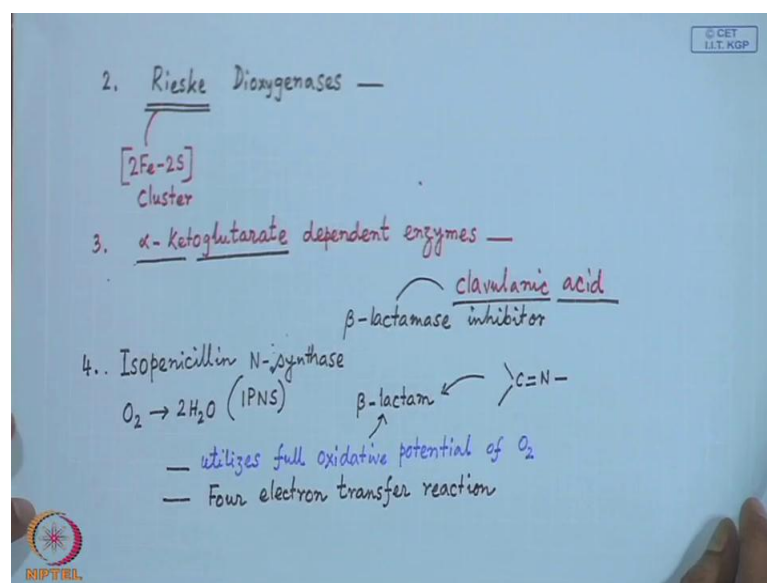 © CET
I.I.T. KGP
2. Rieske Dioxygenases —
[2Fe-2S]
Cluster
3. α-Ketoglutarate dependent enzymes —
clavulanic acid
β-lactamase inhibitor
4.. Isopenicillin N-synthase
O₂ → 2H₂O (IPNS)
β-lactam
C=N-
— utilizes full oxidative potential of O₂
— Four electron transfer reaction
NPTEL